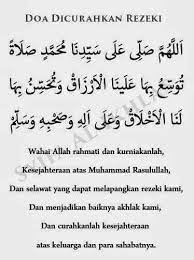 Doa Dicurahkan Rezeki
اَللّٰهُمَّ صَلِّى عَلَى سَيِّدِنَا مُحَمَّدٍ صَلاَةً
تُوَسِّعُ بِهَا عَلَيْنَا الْاَرْزَاقْ وَتُحَسِّنُ بِهَا
لَنَا الْاَخْلَاقْ وَعَلَى اٰلِهِ وَصَحْبِهِ وَسَلِّمْ
Wahai Allah rahmati dan kurniakanlah,
Kesejahteraan atas Muhammad Rasulullah,
Dan selawat yang dapat melapangkan rezeki kami,
Dan menjadikan baiknya akhlak kami,
Dan curahkanlah kesejahteraan
atas keluarga dan para sahabatnya.